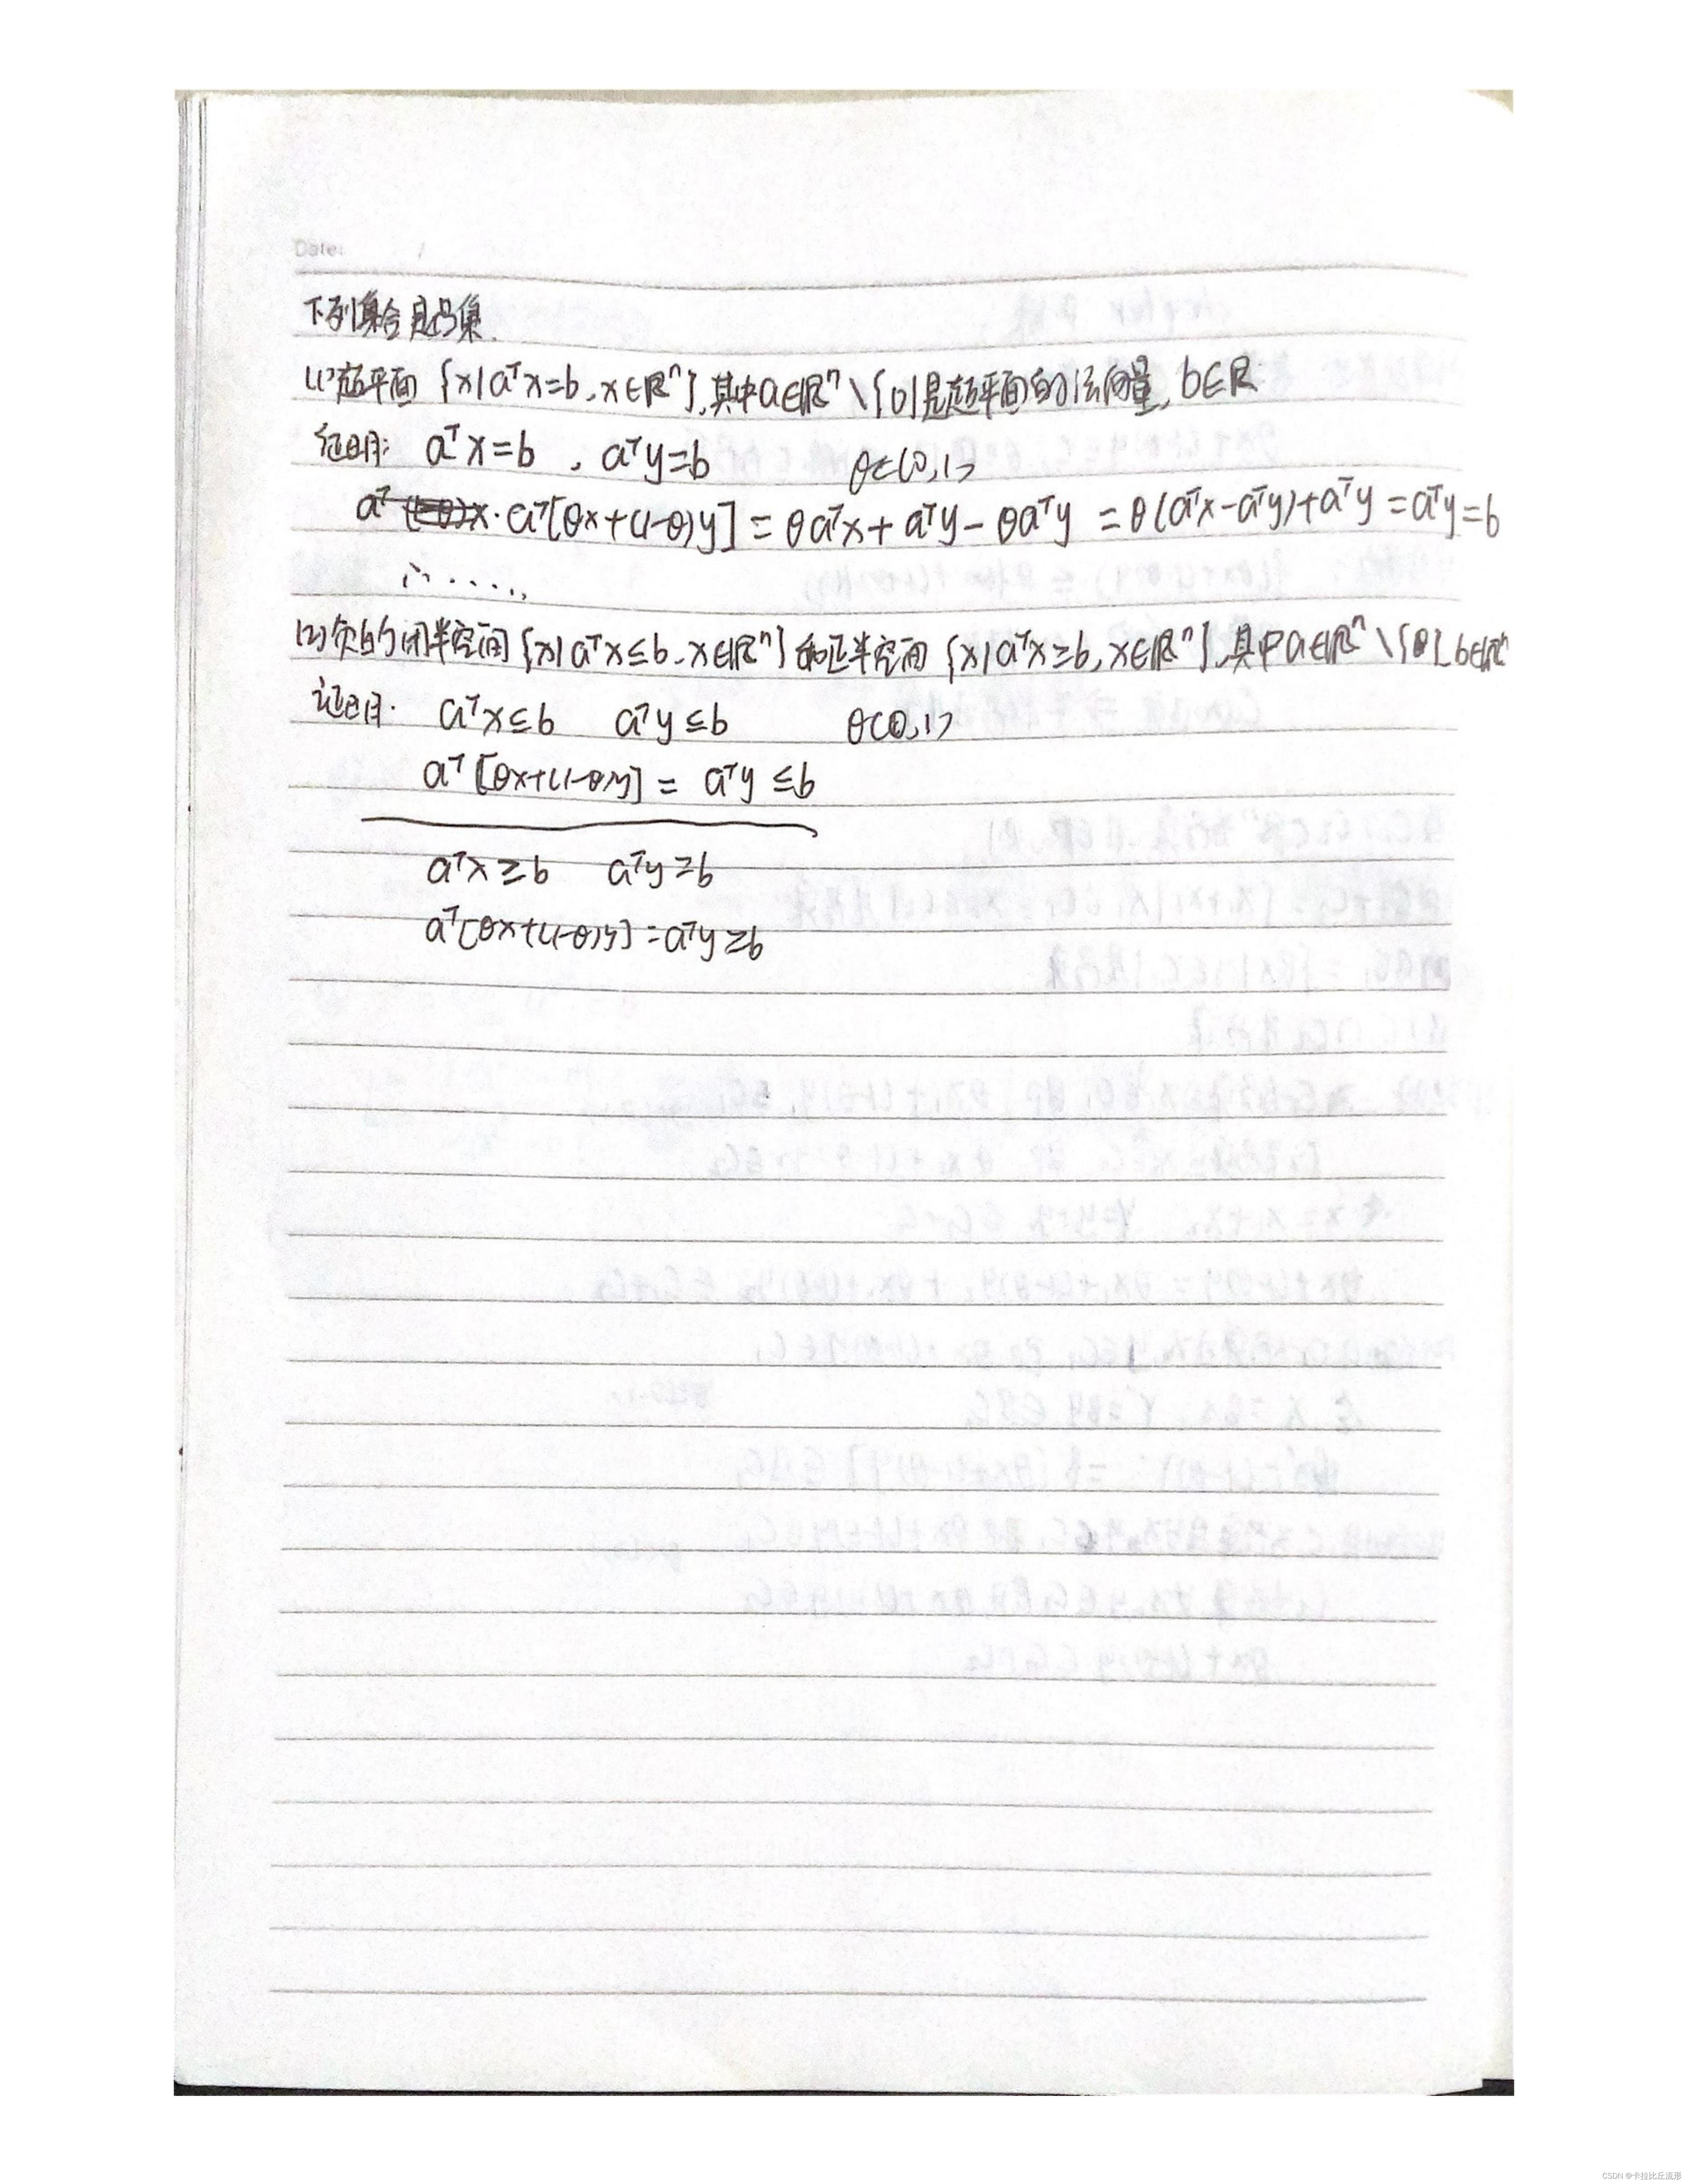 Date: /
下列集合是凸集.
(1)超平面 {x|aᵀx=b,x∈ℝⁿ},其中a∈ℝⁿ\{0}是超平面的法向量,b∈ℝ
证明: aᵀx=b , aᵀy=b θ∈(0,1)
aᵀ x. aᵀ[θx+(1-θ)y] = θaᵀx+aᵀy-θaᵀy =θ(aᵀx-aᵀy)+aᵀy=aᵀy=b
∴.....
(2) 的闭半空间{x|aᵀx≤b,x∈ℝⁿ}和正半空间{x|aᵀx≥b,x∈ℝⁿ},其中a∈ℝⁿ\{0} b∈ℝⁿ
证明. aᵀx≤b aᵀy≤b θ(0,1)
aᵀ[θx+(1-θ)y] = aᵀy ≤b
aᵀx≥b aᵀy≥b
aᵀ[θx+(1-θ)y]=aᵀy≥b
CSDN @卡拉比丘流形